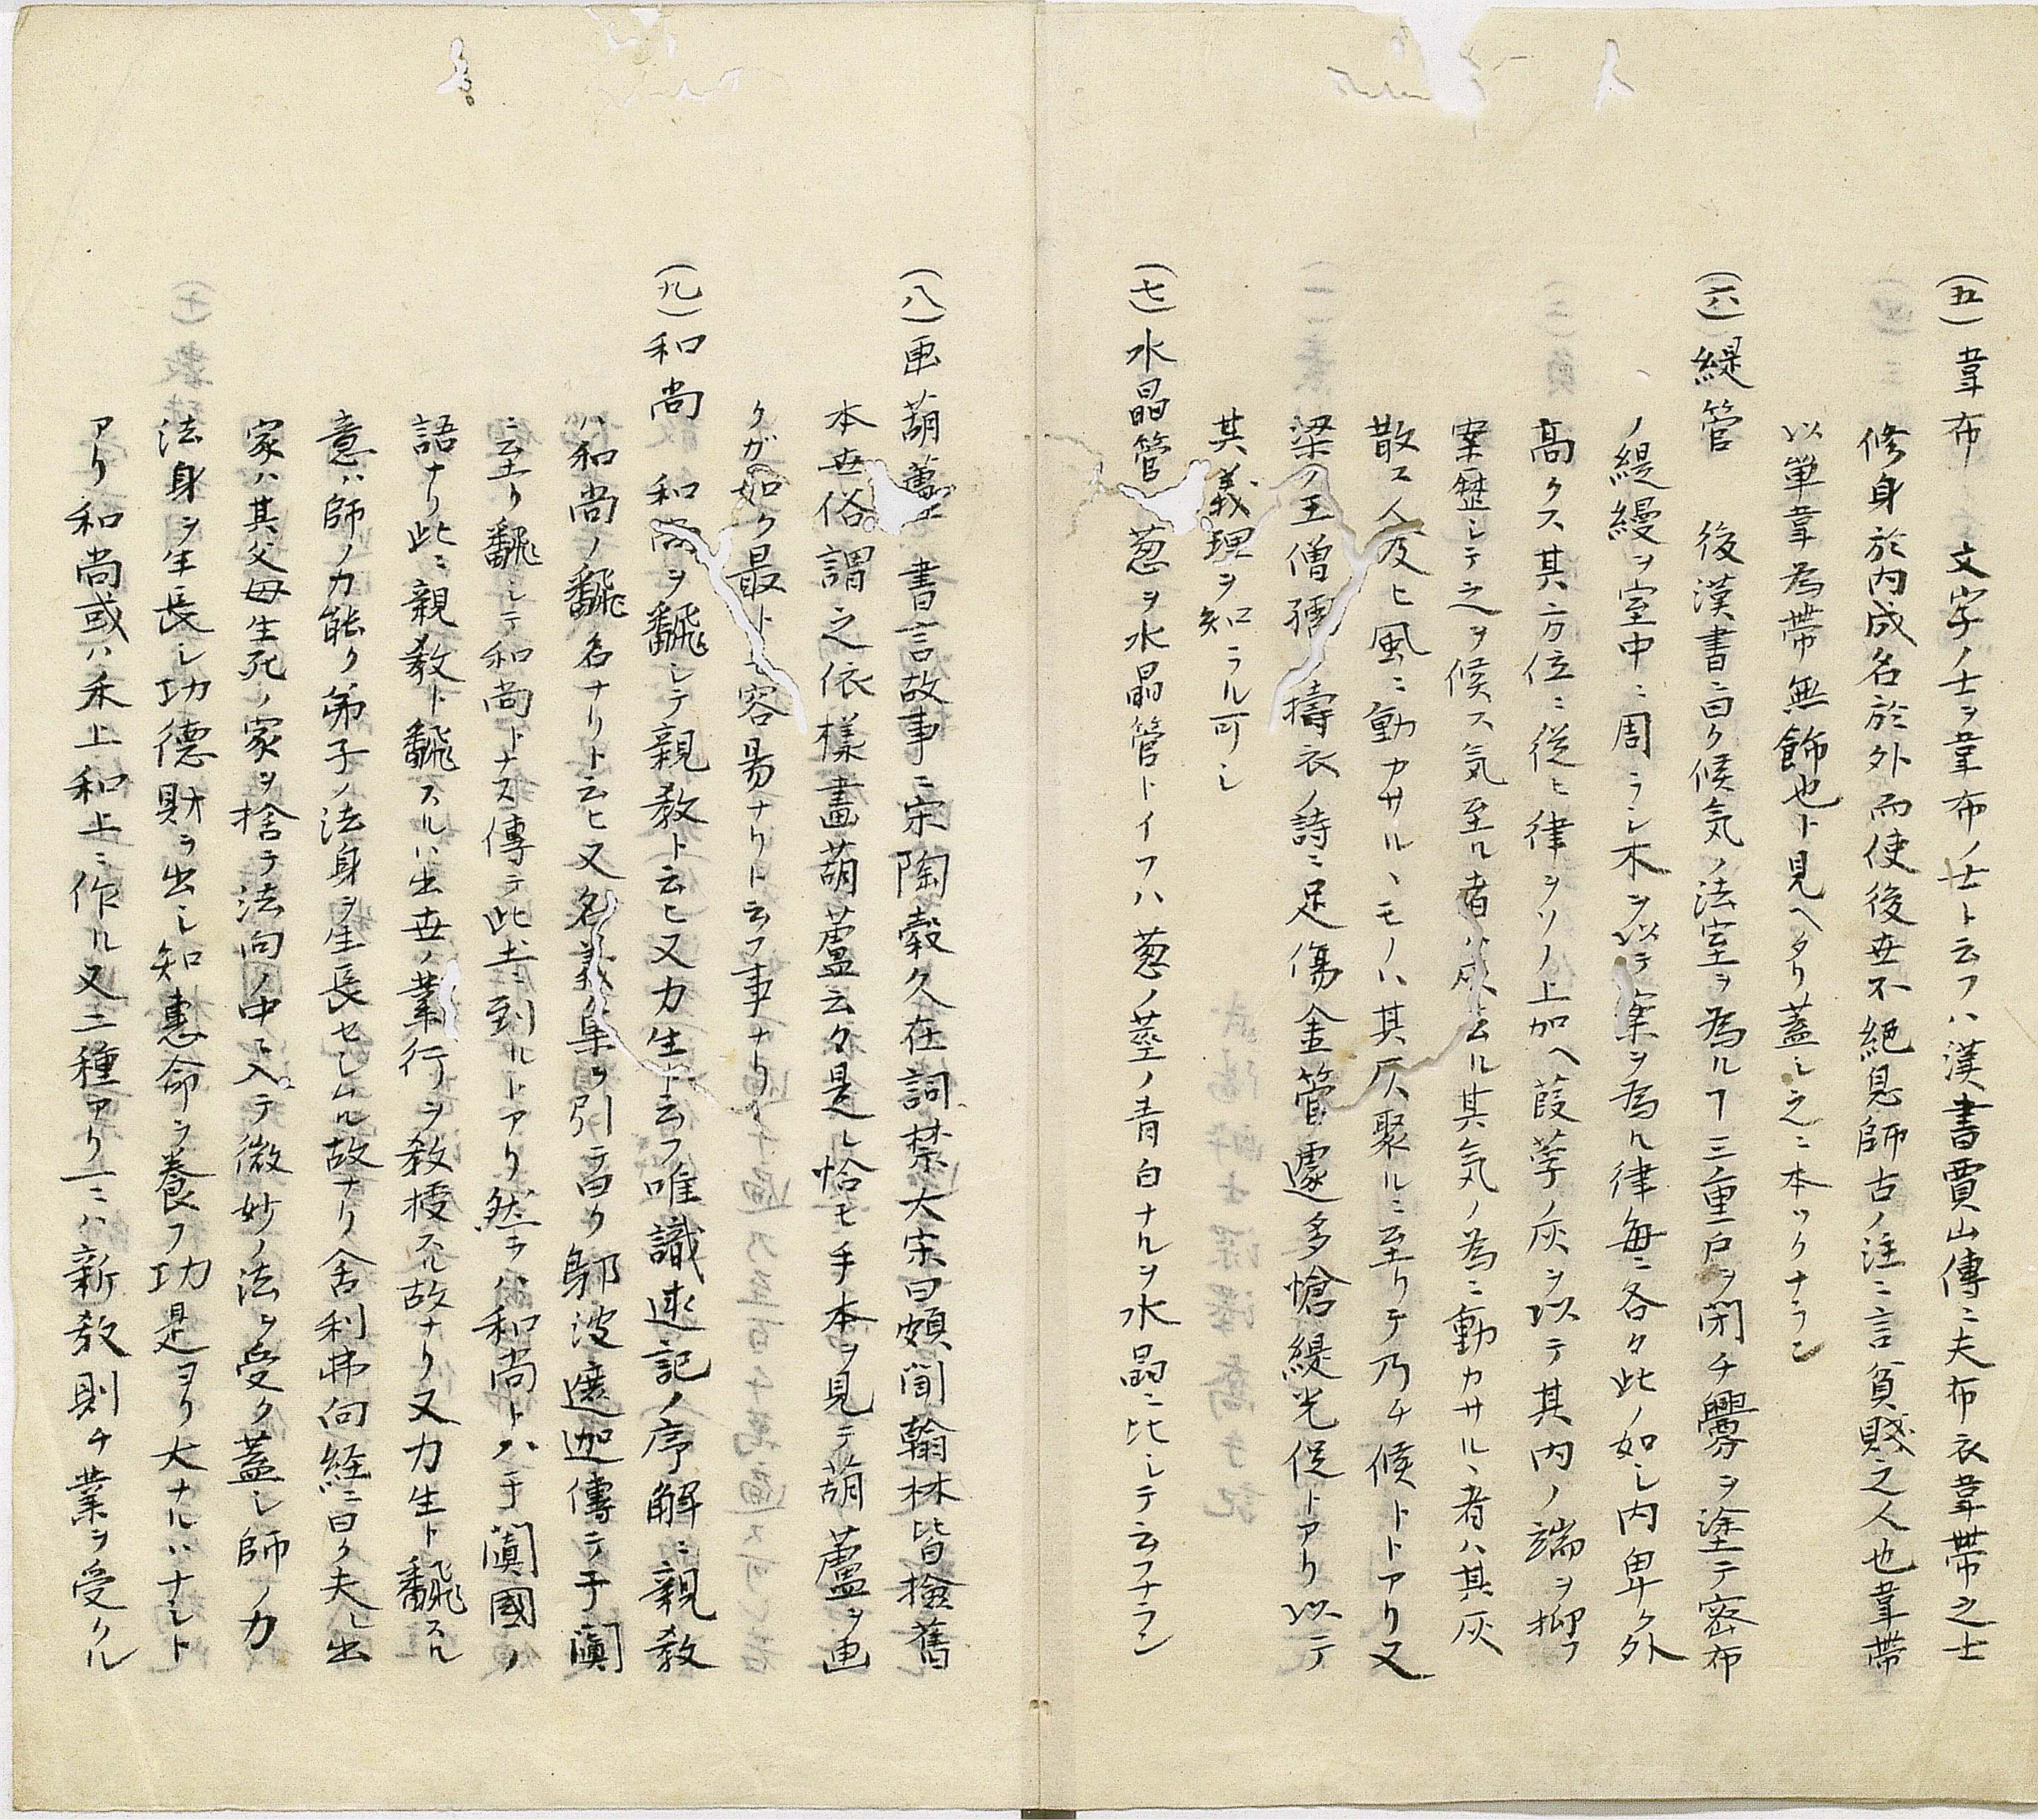 (五)韋布 文字ノ士ヲ韋布ノ士ト云フハ漢書賈山傳ニ夫布衣韋帶之士
修身於内成名於外而使後世不絶息師古ノ注ニ言貧賤之人也韋帶
以單韋為帶無飾也ト見ヘタリ蓋シ之ニ本ツクナラン
(六)緹管 後漢書ニ曰ク候気ノ法室ヲ為ルヿ三重戸ヲ閉チ釁ヲ塗テ密布
ノ緹縵ヲ室中ニ周ラシ木ヲ以テ案ヲ為ル律毎ニ各々此ノ如シ内卑ク外
高クス其方位ニ從ヒ律ヲソノ上加ヘ葭莩ノ灰ヲ以テ其内ノ端ヲ抑フ
案歴シテ之ヲ候ス気至ル者ハ灰去ル其気ノ為ニ動カサルヽ者ハ其灰
散ス人及ヒ風ニ動カサルヽモノハ其灰聚ルニ至リテ乃チ候トトアリ又
梁ノ王僧孺ノ擣衣ノ詩ニ足傷金管遽多愴緹光促トアリ以テ
其義理ヲ知ラル可シ
(七)水晶管 葱ヲ水晶管トイフハ葱ノ莖ノ青白ナルヲ水晶ニ比シテ云フナラン
(八)画葫蘆 書言故事ニ宋陶穀久在詞禁大宗曰頗聞翰林皆撿舊
本世俗謂之依樣畫葫蘆云々是レ恰モ手本ヲ見テ葫蘆ヲ画
クガ如ク最トモ容易ナリト云フ事ナリ
(九)和尚 和尚ヲ飜シテ親敎ト云ヒ又力生ト云フ唯識述記ノ序解ニ親敎
ハ和尚ノ飜名ナリト云ヒ又名義集ヲ引テ曰ク鄔波遮迦傳テ于闐
ニ至リ飜シテ和尚トナス傳テ此土ニ到ルトアリ然ラハ和尚トハ于闐國ノ
語ナリ此ニ親敎ト飜スルハ出世ノ業行ヲ敎授スル故ナリ又力生ト飜スル
意ハ師ノ力能ク弟子ノ法身ヲ生長セシムル故ナリ舍利弗向経ニ曰ク夫レ出
家ハ其父母生死ノ家ヲ捨テ法向ノ中ニ入テ微妙ノ法ヲ受ク蓋シ師ノ力
法身ヲ生長シ功德財ヲ出シ知恵命ヲ養フ功是ヨリ大ナルハナシト
アリ和尚或ハ禾上和上ニ作ル又二種アリ一ニハ新敎則チ業ヲ受クル